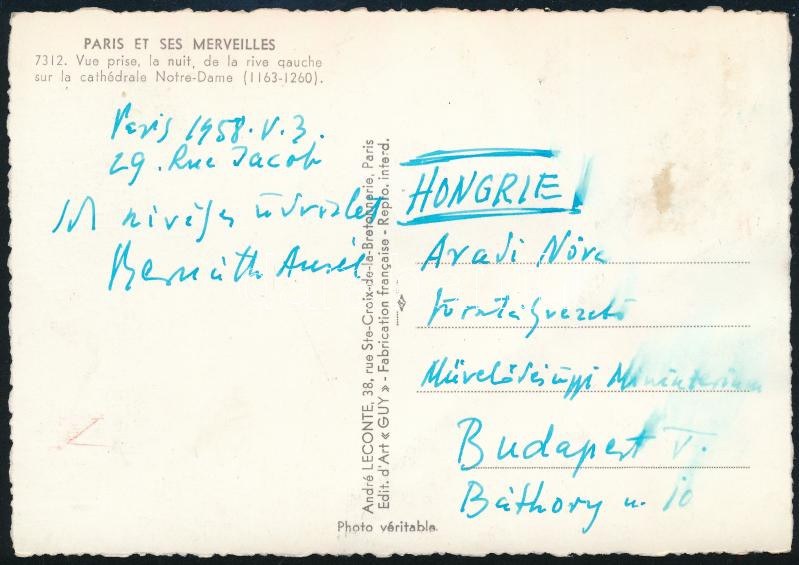 PARIS ET SES MERVEILLES
7312. Vue prise, la nuit, de la rive gauche
sur la cathédrale Notre-Dame (1163-1260).
Paris 1958. V. 3.
29. Rue Jacob
Sok szíves üdvözlet
Bernáth Aurél
André LECONTE, 38, rue Ste-Croix-de-la-Bretonnerie, Paris
Edit. d'Art « GUY » - Fabrication française - Repro. interd.
HONGRIE
Aradi Nóra
Művelődésügyi Minisztérium
Budapest V.
Báthory u. 10
Photo véritable